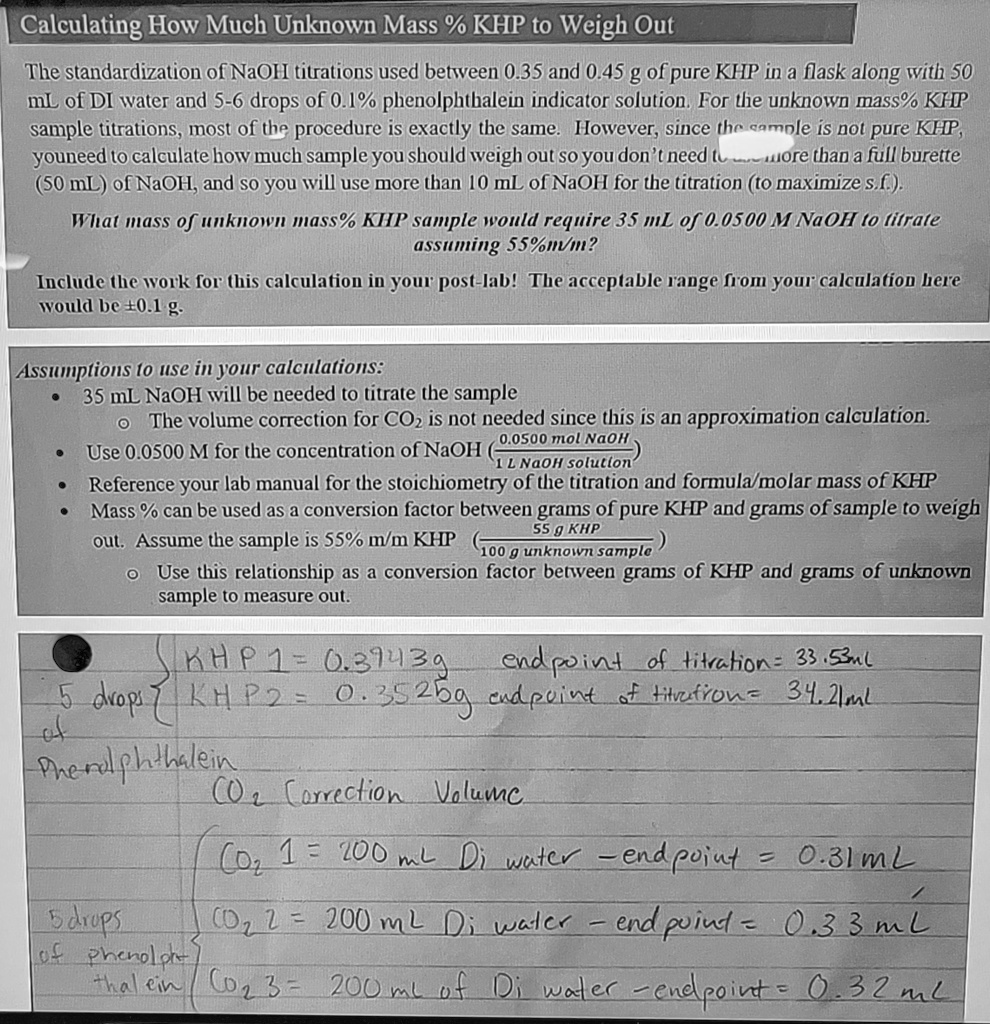 Calculating How Much Unknown Mass % KHP to Weigh Out
The standardization of NaOH titrations used between 0.35 and 0.45 g of pure KHP in a flask along with 50
mL of DI water and 5-6 drops of 0.1% phenolphthalein indicator solution. For the unknown mass% KHP
sample titrations, most of the procedure is exactly the same. However, since the sample is not pure KHP,
youneed to calculate how much sample you should weigh out so you don't need more than a full burette
(50 mL) of NaOH, and so you will use more than 10 mL of NaOH for the titration (to maximize s.f.).
What mass of unknown mass% KHP sample would require 35 mL of 0.0500 M NaOH to titrate
assuming 55%m/m?
Include the work for this calculation in your post-lab! The acceptable range from your calculation here
would be ±0.1 g.
Assumptions to use in your calculations:
• 35 mL NaOH will be needed to titrate the sample
o The volume correction for CO₂ is not needed since this is an approximation calculation.
• Use 0.0500 M for the concentration of NaOH (0.0500 mol NaOH / 1 L NaOH solution)
• Reference your lab manual for the stoichiometry of the titration and formula/molar mass of KHP
• Mass % can be used as a conversion factor between grams of pure KHP and grams of sample to weigh
out. Assume the sample is 55% m/m KHP (55 g KHP / 100 g unknown sample)
o Use this relationship as a conversion factor between grams of KHP and grams of unknown
sample to measure out.
KHP 1 = 0.3943g endpoint of titration = 33.53ml
5 drops KHP2 = 0.3526g endpoint of titration = 34.21ml
of
Phenolphthalein
CO₂ Correction Volume
CO₂ 1 = 200 mL Di water - endpoint = 0.31 mL
5 drops CO₂ 2 = 200 mL Di water - endpoint = 0.33 mL
of phenolph
thalein CO₂ 3 = 200 mL of Di water - endpoint = 0.32 mL